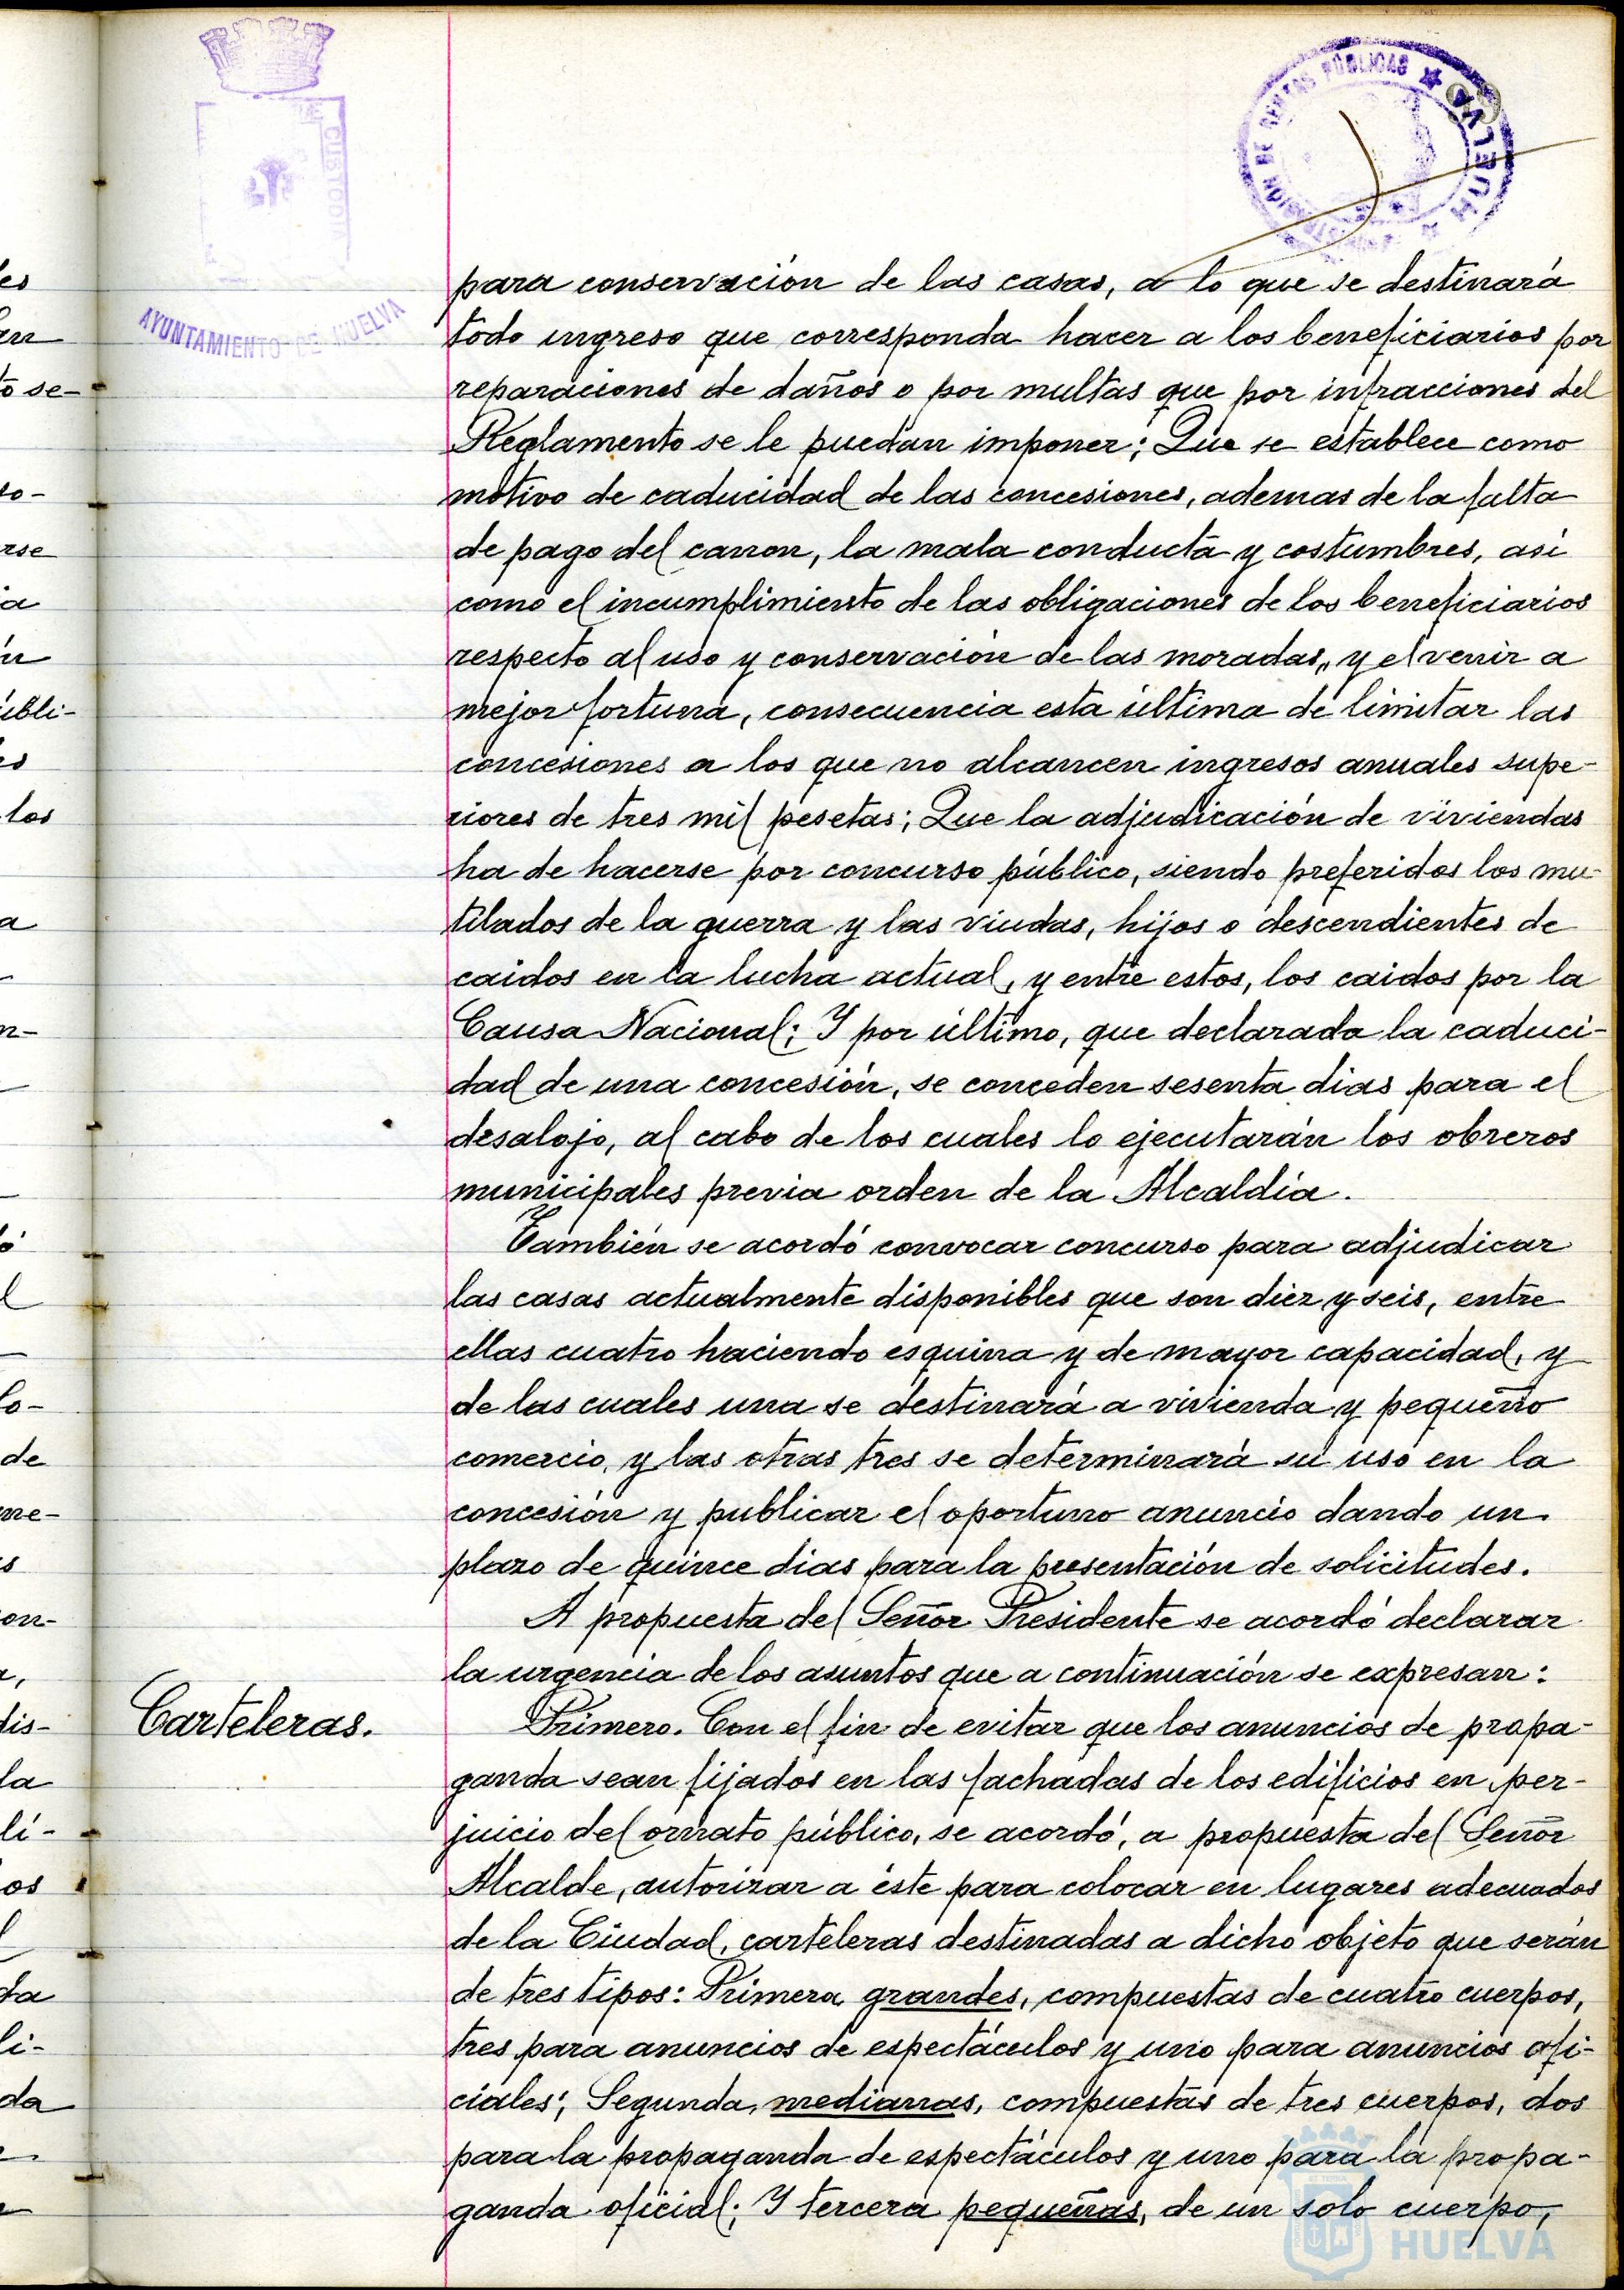 AYUNTAMIENTO DE HUELVA
HUELVA
para conservación de las casas, a lo que se destinará
todo ingreso que corresponda hacer a los beneficiarios por
reparaciones de daños o por multas que por infracciones del
Reglamento se le puedan imponer; Que se establece como
motivo de caducidad de las concesiones, ademas de la falta
de pago del canon, la mala conducta y costumbres, así
como el incumplimiento de las obligaciones de los beneficiarios
respecto al uso y conservación de las moradas, y el venir a
mejor fortuna, consecuencia esta última de limitar las
concesiones a los que no alcancen ingresos anuales supe-
riores de tres mil pesetas; Que la adjudicación de viviendas
ha de hacerse por concurso público, siendo preferidos los mu-
tilados de la guerra y las viudas, hijos o descendientes de
caidos en la lucha actual, y entre estos, los caidos por la
Causa Nacional; Y por último, que declarada la caduci-
dad de una concesión, se conceden sesenta dias para el
desalojo, al cabo de los cuales lo ejecutarán los obreros
municipales previa orden de la Alcaldía.
También se acordó convocar concurso para adjudicar
las casas actualmente disponibles que son diez y seis, entre
ellas cuatro haciendo esquina y de mayor capacidad, y
de las cuales una se destinará a vivienda y pequeño
comercio, y las otras tres se determinará su uso en la
concesión y publicar el oportuno anuncio dando un
plazo de quince dias para la presentación de solicitudes.
A propuesta del Señor Presidente se acordó declarar
la urgencia de los asuntos que a continuación se expresan:
Carteleras.
Primero. Con el fin de evitar que los anuncios de propa-
ganda sean fijados en las fachadas de los edificios en per-
juicio del ornato público, se acordó, a propuesta del Señor
Alcalde, autorizar a éste para colocar en lugares adecuados
de la Ciudad, carteleras destinadas a dicho objeto que serán
de tres tipos: Primera grandes, compuestas de cuatro cuerpos,
tres para anuncios de espectáculos y uno para anuncios ofi-
ciales; Segunda, medianas, compuestas de tres cuerpos, dos
para la propaganda de espectáculos y uno para la propa-
ganda oficial; Y tercera pequeñas, de un solo cuerpo,
HUELVA